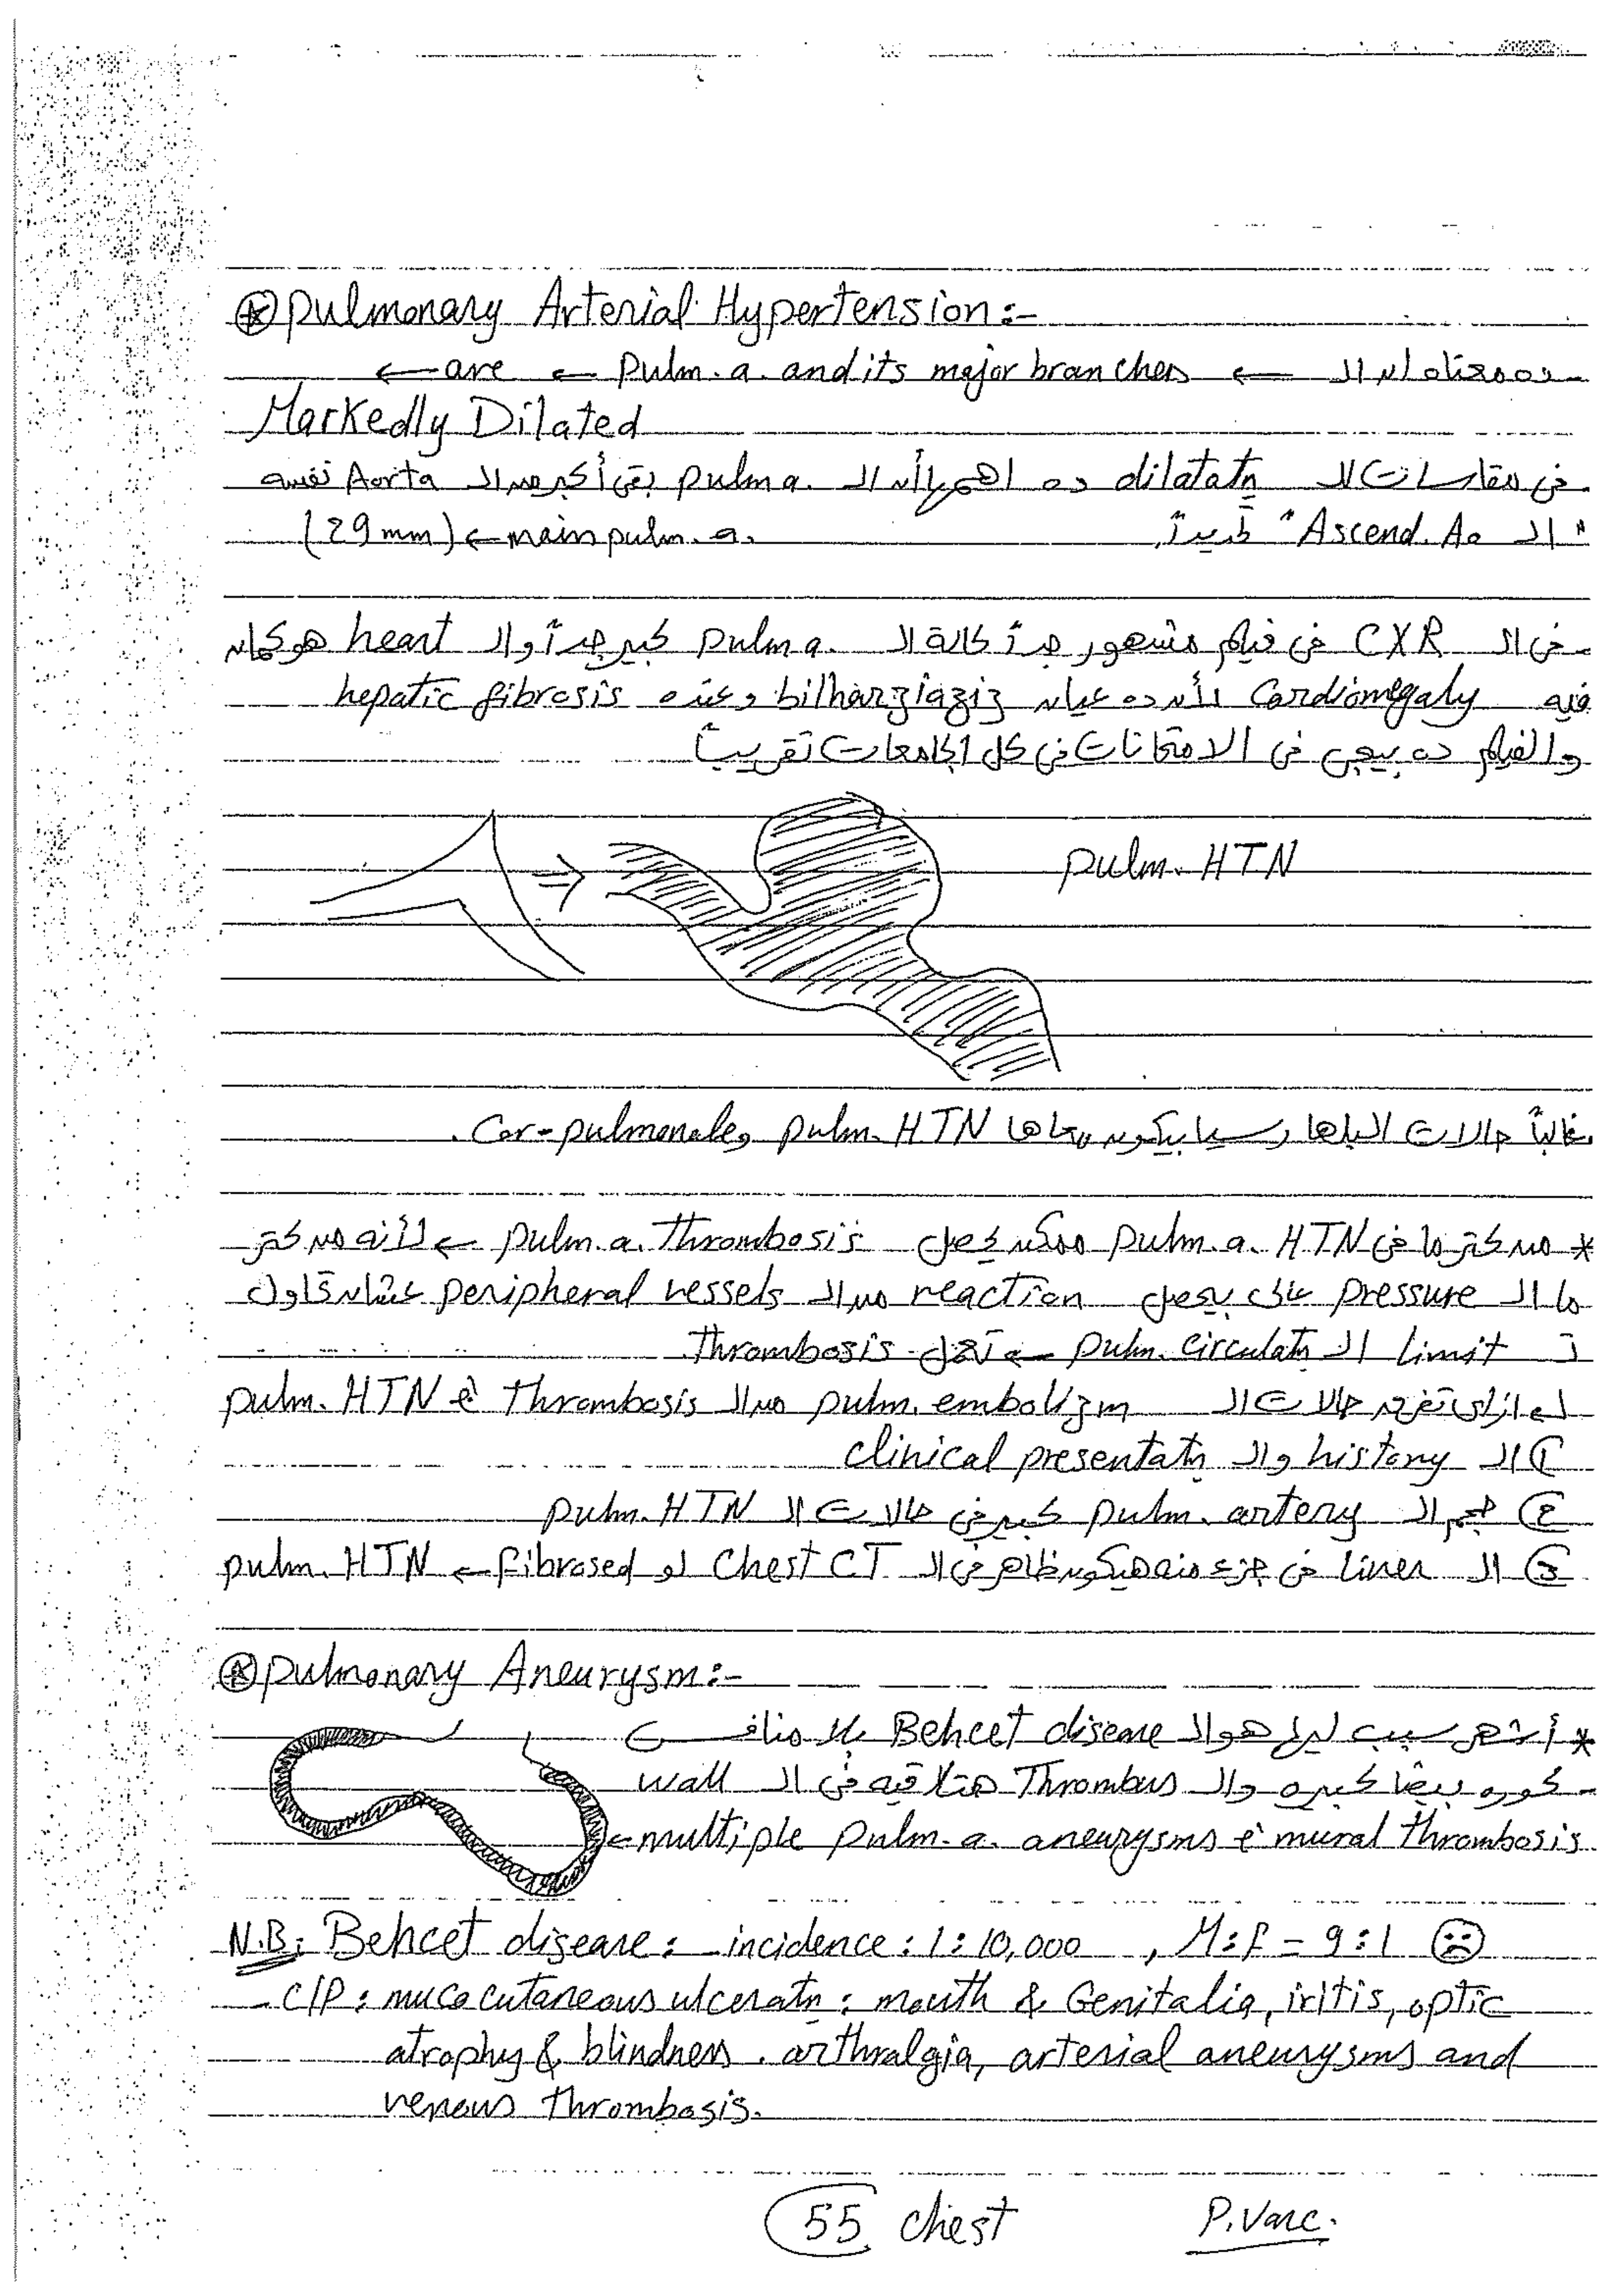 ⊛ Pulmonary Arterial Hypertension :-
ده معناه ان الـ ← Pulm. a. and its major branches ← are ←
Markedly Dilated
في مقاسات الـ dilatatn ده اهمها أن الـ pulm a. بقى أكبر من الـ Aorta نفسه
"الـ Ascend. Ao" تقريباً main pulm. a. → (29 mm)
في الـ CXR في فيلم مشهور جداً كالة الـ pulm a. كبير جداً والـ heart هو كمان
فيه Cardiomegaly لأن ده عيان bilharziazis وعنده hepatic fibrosis
والفيلم ده بييجي في الامتحانات في كل الجامعات تقريباً
pulm. HTN
غالباً حالات البلهارسيا بيكون معاها pulm. HTN و Cor-pulmonale.
* من كتر ما في pulm. a. HTN ممكن يحصل pulm. a. Thrombosis ← لأنه من كتر
ما الـ pressure عالي بيحصل reaction من الـ peripheral vessels عشان تحاول
تـ limit الـ pulm. circulatn ← تعمل Thrombosis.
ازاي تفرق حالات الـ pulm. embolizm من الـ Thrombosis è pulm. HTN
① الـ history والـ clinical presentatn
② حجم الـ pulm. artery كبير في حالات الـ pulm. HTN
③ الـ liver في جزء منه هيكون ظاهر في الـ Chest CT لو fibrosed ← pulm. HTN
⊛ Pulmonary Aneurysm :-
* أشهر سبب ليه هو الـ Behcet disease بلا منافس
كوره بيضا كبيره والـ Thrombus هتلاقيه في الـ wall
← multiple pulm. a. aneurysms è mural thrombosis.
N.B: Behcet disease: - incidence: 1:10,000 , M:F = 9:1 ☹
- C/P: mucocutaneous ulceratn: mouth & Genitalia, iritis, optic
atrophy & blindness. arthralgia, arterial aneurysms and
venous thrombosis.
55 chest P.Varc.